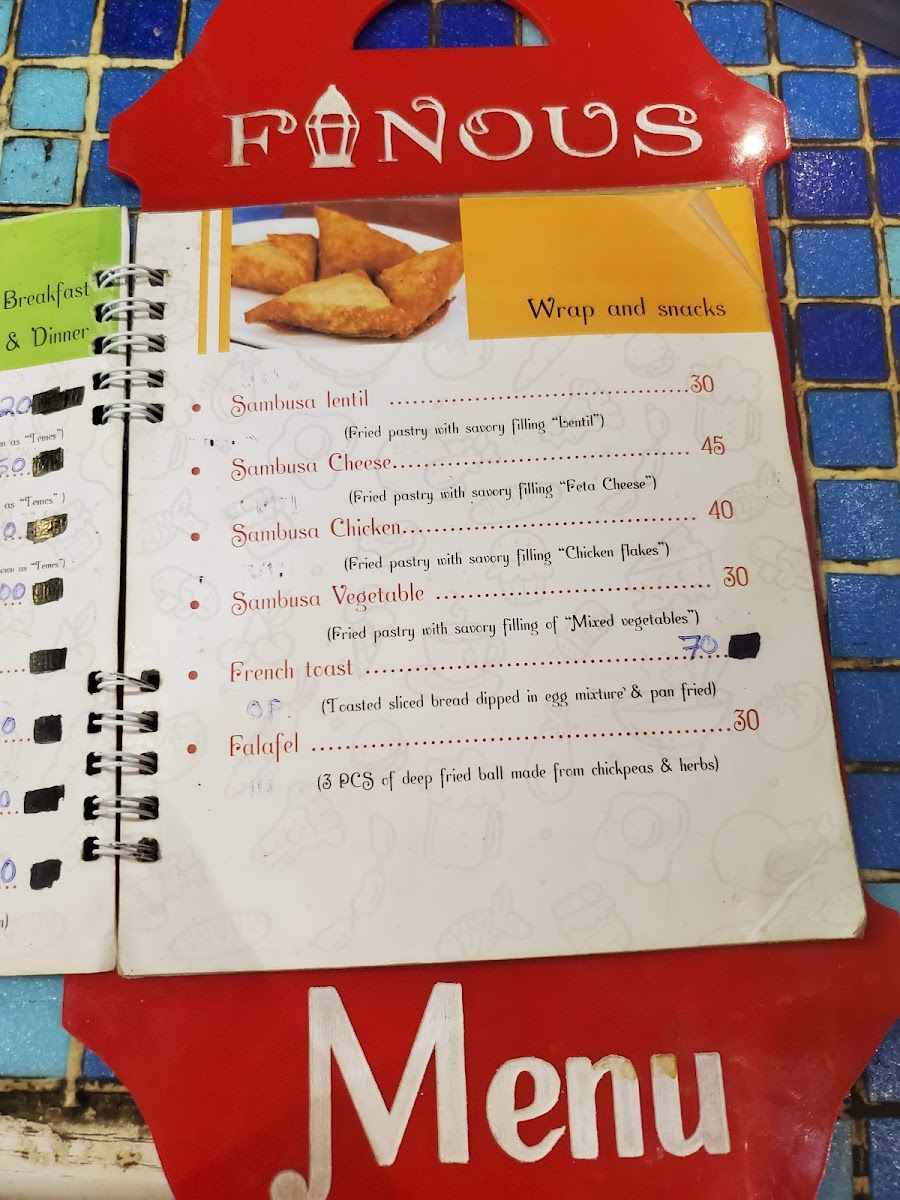 FANOUS
Breakfast
& Dinner
20
as "Temes")
50
as "Temes" )
0
as "Temes")
00
0
0
0
Wrap and snacks
• Sambusa lentil ........................................30
(Fried pastry with savory filling "Lentil")
• Sambusa Cheese........................................ 45
(Fried pastry with savory filling "Feta Cheese")
• Sambusa Chicken........................................ 40
(Fried pastry with savory filling "Chicken flakes")
• Sambusa Vegetable ..................................... 30
(Fried pastry with savory filling of "Mixed vegetables")
• French toast ............................................. 70
(Toasted sliced bread dipped in egg mixture' & pan fried)
• Falafel .......................................................30
(3 PCS of deep fried ball made from chickpeas & herbs)
Menu